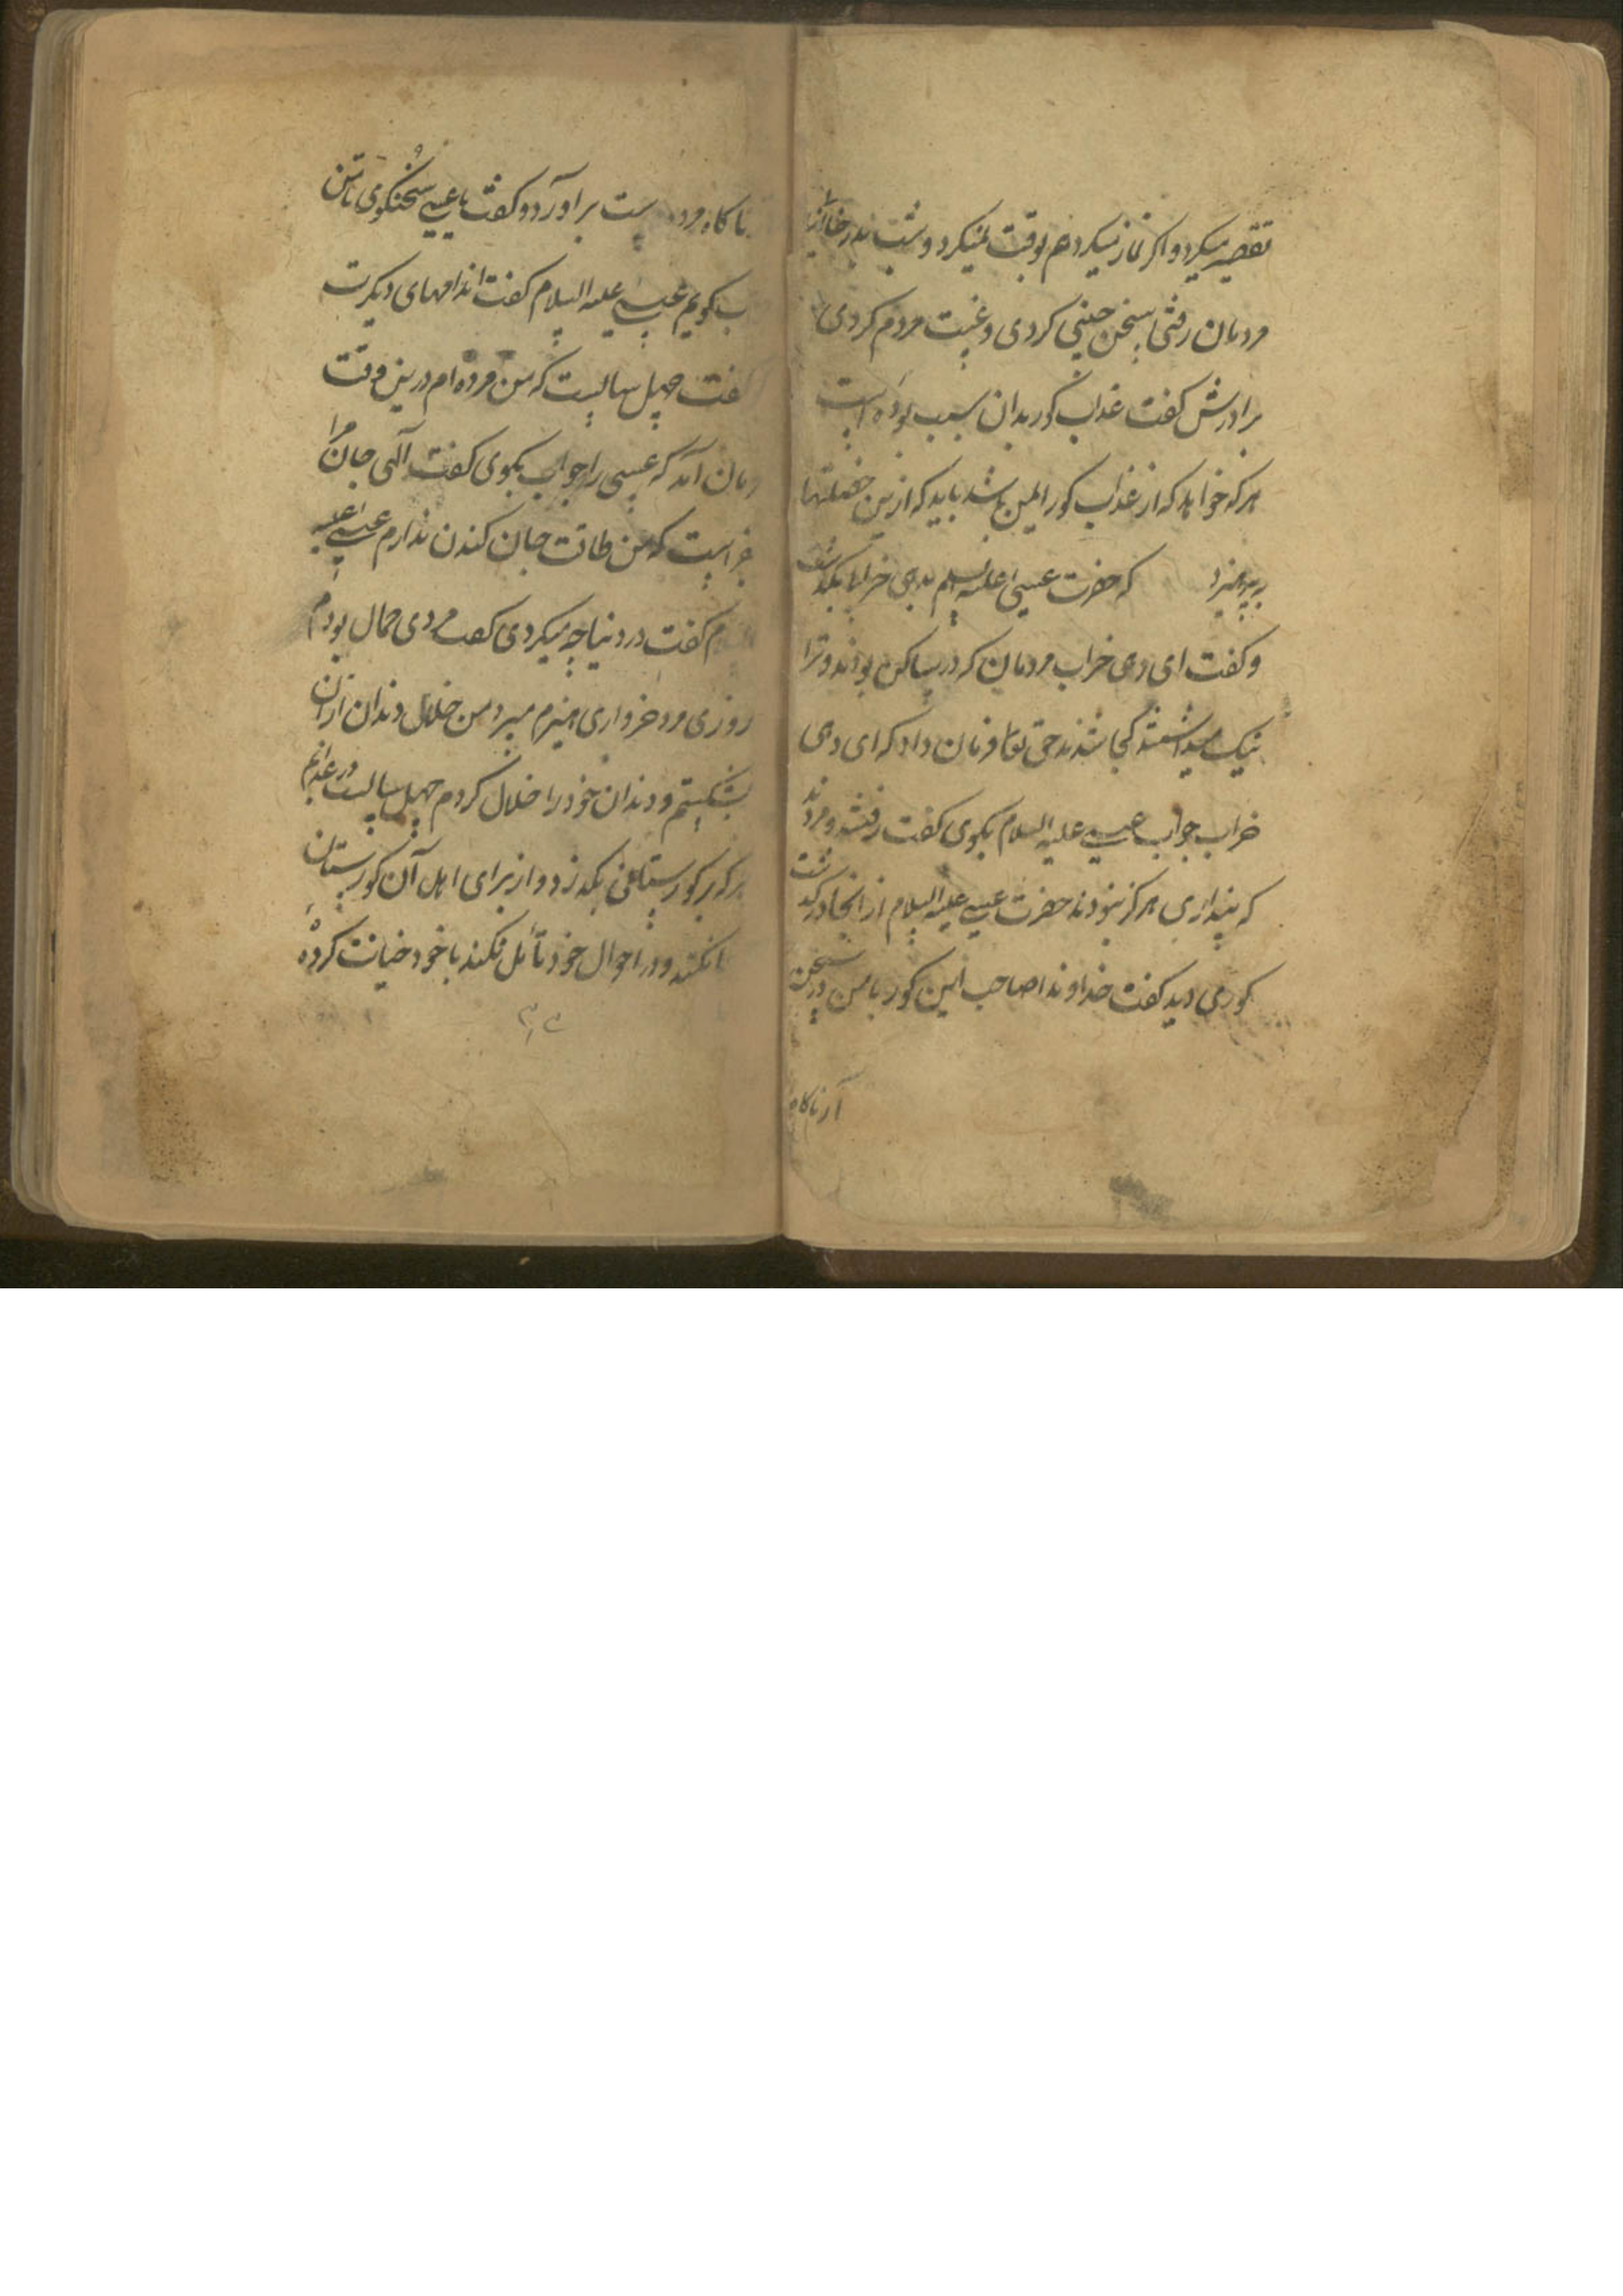 تقصیر میکرد و اکر نماز میکرد هم بوقت نمیکرد و شب بدر خانهای
مردمان رفتی سخن چینی کردی و غیبت مردم کردی
برادرش کفت عذاب کور بدان سبب بوده است
هرکه خواهد که از عذاب کور ایمن باشد باید که ازین خصلتها
بپرهیزد که حضرت عیسی علیه السلم بدهی خراب بکذشت
و کفت ای دهی خراب مردمان که در ساکن بودند و ترا
نیک میداشتند کجا شدند حق تعا فرمان داد که ای دهی
خراب جواب عیسی علیه السلام بکوی کفت رفتند و مردند
که پنداری هرکز نبودند حضرت عیسی علیه السلام از انجا درکذشت
کوری دید کفت خداوندا صاحب این کور با من در سخن
آر ناکاه
ناکاه مرده ست براورد و کفت یا عیسی سخنکوی تا من
کویم عیسی علیه السلام کفت اندامهای دیکرت
کفت چهل سالیست که من مرده ام درین وقت
آمد که عیسی را جواب بکوی کفت آلهی جان مرا
است که من طاقت جان کندن ندارم عیسی علیه
کفت در دنیا چه میکردی کفت مردی حمال بودم
روزی مرد خرواری هیزم میبردم من خلال دندان ازان
بشکستم و دندان خود را خلال کردم چهل سالیست در عذابم
هرکه بر کورستانی بکذرد و از برای اهل آن کورستان
نکند و در احوال خود تأمل نکند با خود خیانت کرده